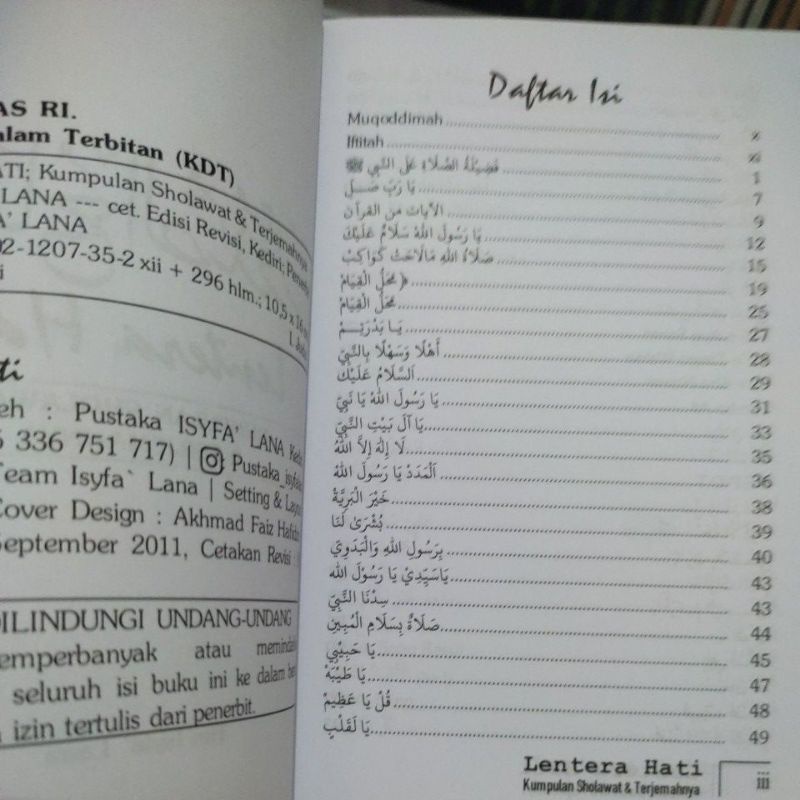 AS RI.
alam Terbitan (KDT)
ATI; Kumpulan Sholawat & Terjemahnya
LANA --- cet. Edisi Revisi, Kediri;
A' LANA
02-1207-35-2 xii + 296 hlm.; 10,5 x 16
i
ti
eh : Pustaka ISYFA' LANA
336 751 717) | Pustaka_isyfa
Team Isyfa` Lana | Setting &
Cover Design : Akhmad Faiz
September 2011, Cetakan Revisi :
DILINDUNGI UNDANG-UNDANG
emperbanyak atau
seluruh isi buku ini ke dalam
izin tertulis dari penerbit.
Daftar Isi
Muqoddimah ........ x
Iftitah ........ xi
فَضِيْلَةُ الصَّلَاةِ عَلَى النَّبِي ﷺ ........ 1
يَا رَبِّ صَــلِّ ........ 7
الآيات من القرآن ........ 9
يَا رَسُولَ اللهِ سَلَامٌ عَلَيْكَ ........ 12
صَلَاةُ اللهِ مَالَاحَتْ كَوَاكِبُ ........ 15
مَحَلُّ الْقِيَامُ ........ 19
مَحَلُّ الْقِيَامُ ........ 25
يَـا بَدْرَتِــمّ ........ 27
أَهْلًا وَسَهْلًا بِالنَّبِيّ ........ 28
اَلسَّلَامُ عَلَيْكَ ........ 29
يَا رَسُولَ اللهِ يَا نَبِيّ ........ 31
يَا آلَ بَيْتِ النَّبِيّ ........ 33
لَا إِلٰهَ إِلَّا اللهُ ........ 35
اَلْمَدَدْ يَا رَسُولَ اللهِ ........ 36
خَيْرَ الْبَرِيَّةْ ........ 38
بُشْرَىٰ لَنَا ........ 39
بِرَسُولِ اللهِ وَالْبَدَوِيّ ........ 40
يَاسَيِّدِيْ يَا رَسُوْلَ الله ........ 43
سِدْنَا النَّبِيّ ........ 43
صَلَاةٌ بِسَلَامِ الْمُبِينِ ........ 44
يَا حَبِيْبِي ........ 45
يَا طَيْبَةْ ........ 47
قُلْ يَا عَظِيمُ ........ 48
يَا لَقَلْبٍ ........ 49
Lentera Hati
Kumpulan Sholawat & Terjemahnya
iii